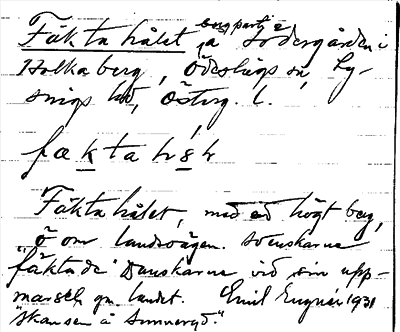 bergparti å
Fäktahålet, å Södergården i
Holkaberg, Ödeshögs sn, Ly-
sings hd, Österg. l.
fæktahsh
Fäktahålet, med ett högt berg,
ö om landsvägen. Svenskarne
"fäktade" Danskarne vid sin upp-
marsch gm landet. Emil 1931
"Skansen å Sunneryd."